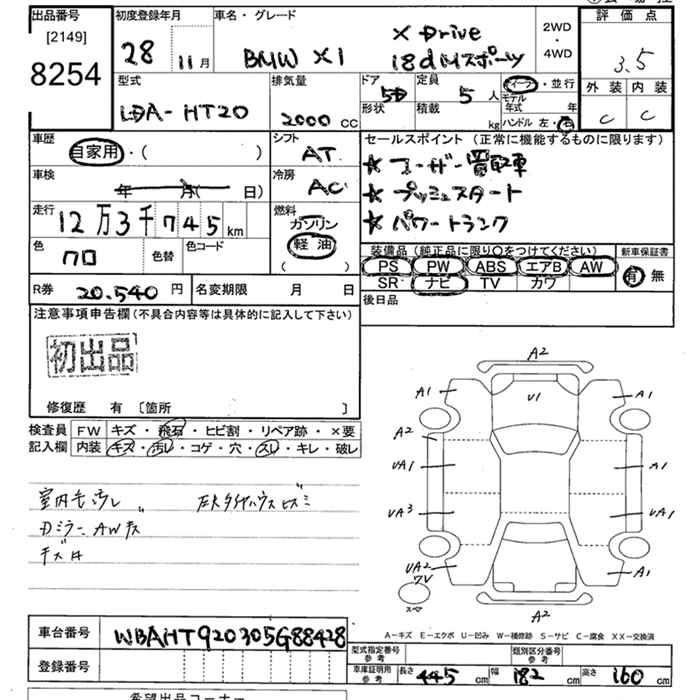 出品番号
[2149]
8254
初度登録年月
28
11月
車名・グレード
BMW X1
X Drive
18d Mスポーツ
2WD
・
4WD
評価点
3.5
外装
内装
C
C
型式
LDA-HT20
排気量
2000 CC
ドア
5D
形状
定員
5人
積載
kg
ディーラー・並行
モデル
年式
年
ハンドル 左・右
車歴
自家用・( )
シフト
AT
セールスポイント(正常に機能するものに限ります)
☆ ユーザー買取車
☆ プッシュスタート
☆ パワートランク
車検
年 月( 日)
冷房
AC
走行
12万3千745km
燃料
ガソリン
軽油
( )
色
クロ
色替
色コード
装備品(純正品に限り○をつけてください)
PS PW ABS エアB AW
SR ナビ TV カワ
新車保証書
有 無
R券
20.540円
名変期限 月 日
後日品
注意事項申告欄(不具合内容等は具体的に記入して下さい)
初出品
修復歴 有〔箇所 〕
検査員
記入欄
FW キズ・飛石・ヒビ割・リペア跡・×要
内装 キズ・汚レ・コゲ・穴・スレ・キレ・破レ
室内キズ汚レ
Dミラー、AWガ
キズ
A2
A1
U1
A1
A2
UA1
A1
UA3
UA1
UA2
7V
A1
スペア
A2
A-キズ E-エクボ U-凹み W-補修跡 S-サビ C-腐食 XX-交換済
車台番号
WBAHT920305G88428
登録番号
型式指定番号
参考
類別区分番号
参考
車庫証明用
参考
長さ 445cm
幅 182cm
高さ 160cm
希望出品コーナー